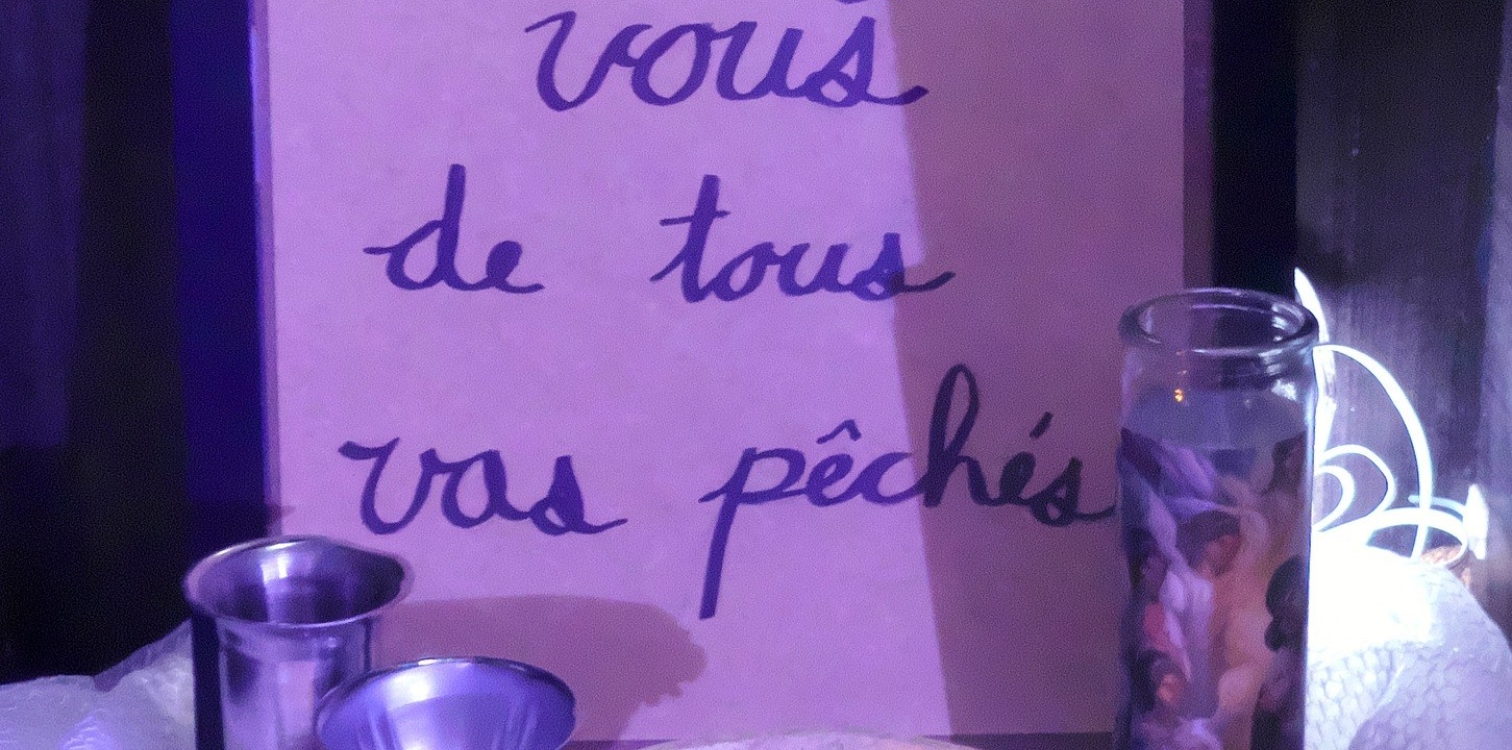 vous
de tous
vos pêchés